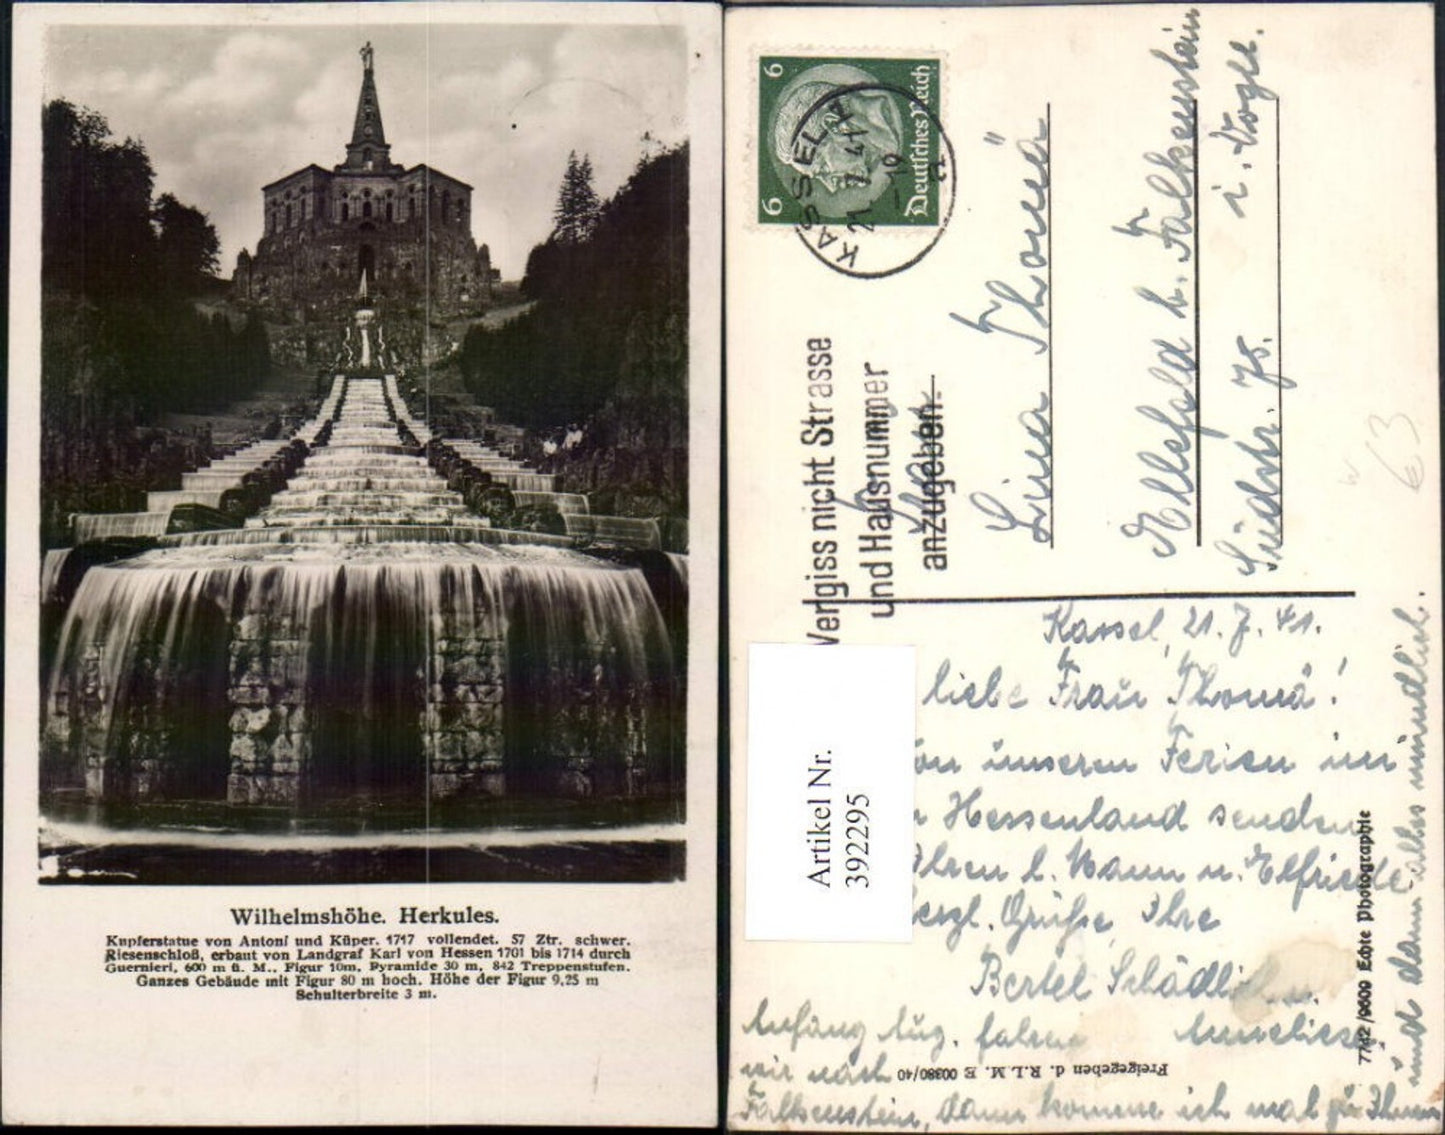 Wilhelmshöhe. Herkules.
Kupferstatue von Antoni und Küper. 1717 vollendet. 57 Ztr. schwer.
Riesenschloß, erbaut von Landgraf Karl von Hessen 1701 bis 1714 durch
Guernieri, 600 m ü. M., Figur 10m, Pyramide 30 m, 842 Treppenstufen.
Ganzes Gebäude mit Figur 80 m hoch. Höhe der Figur 9,25 m
Schulterbreite 3 m.
6 Deutsches Reich 6
KASSEL
21.7.41
Vergiss nicht Strasse
und Hausnummer
anzugeben.
Lina Thomä
Ellefeld b. Falkenstein
i. Vogtl.
Südstr.
63
Kassel, 21.7.41.
liebe Frau Thomä!
unseren Ferien im
Hessenland senden
Ihren l. Mann u. Elfriede
herzl. Grüße, Ihre
Bertel Schädlich u.
Anneliese
Anfang Aug. fahren
wir nach
Falkenstein, dann komme ich mal zu Ihnen
und dann alles mündlich.
Artikel Nr.
392295
Freigegeben d. R.L.M. E 00380/40
7742/9609 Echte Photographie